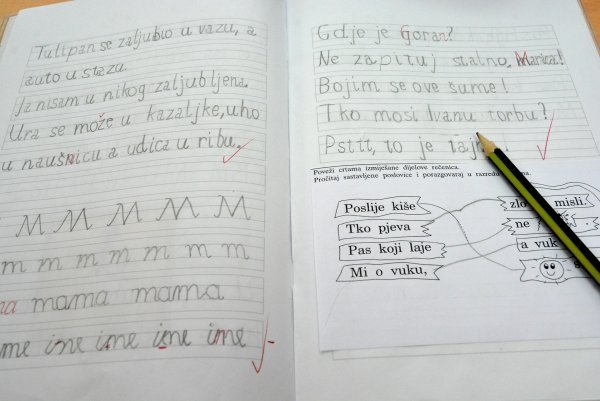 Tulipan se zaljubio u vazu, a
auto u stazu.
Ja nisam u nikog zaljubljena.
Ura se može u kazaljke, uho
u naušnicu a udica u ribu.
M M M M M
m m m m m m
mama mama
ime ime ime ime
Gdje je Goran?
Ne zapituj stalno, Marina!
Bojim se ove šume!
Tko mosi Ivanu torbu?
Psttt, to je
Poveži crtama izmiješane dijelove rečenica.
Pročitaj sastavljene poslovice i porazgovaraj u razredu
Poslije kiše
Tko pjeva
Pas koji laje
Mi o vuku,
zlo misli.
ne
a vuk